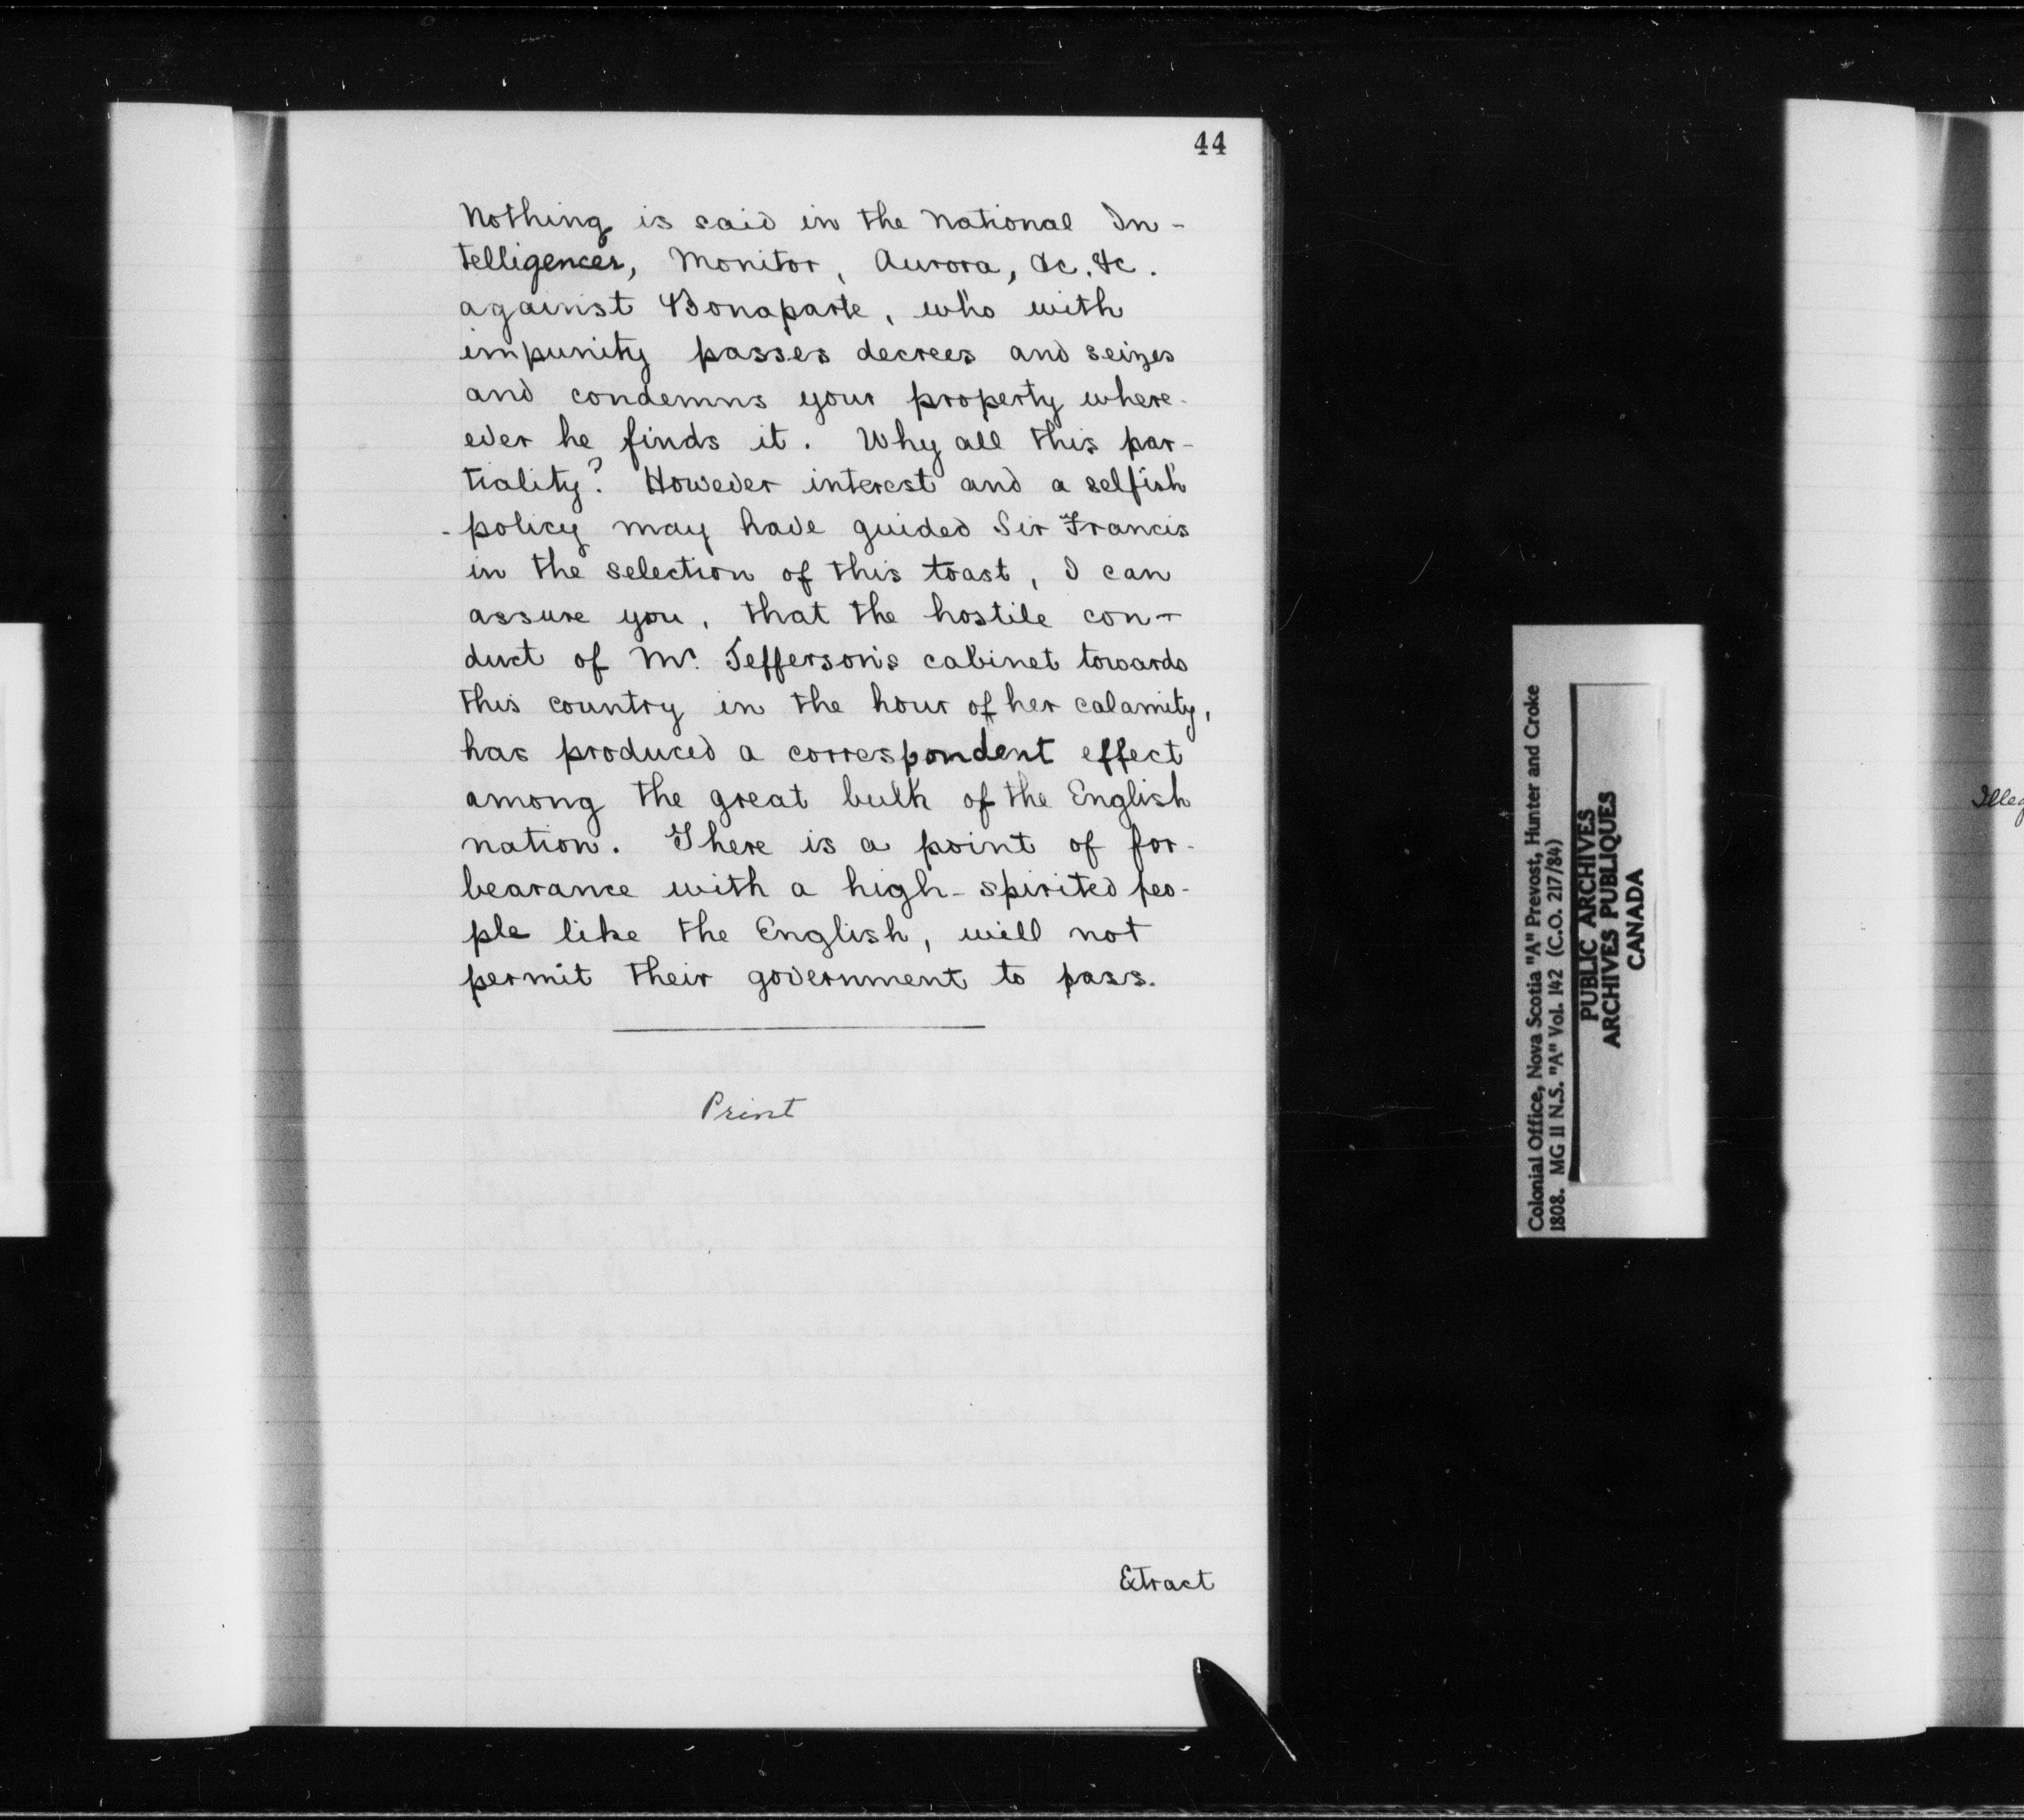 44
Nothing is said in the National In-
telligencer, Monitor, Aurora, &c. &c.
against Bonaparte, who with
impunity passes decrees and seizes
and condemns your property where-
ever he finds it. Why all this par-
tiality? However interest and a selfish
policy may have guided Sir Francis
in the selection of this toast, I can
assure you, that the hostile con-
duct of Mr. Jefferson's cabinet towards
this country in the hour of her calamity,
has produced a correspondent effect
among the great bulk of the English
nation. There is a point of for-
bearance with a high-spirited peo-
ple like the English, will not
permit their government to pass.
Print
Extract
Colonial Office, Nova Scotia "A" Prevost, Hunter and Croke
1808. MG 11 N.S. "A" Vol. 142 (C.O. 217/84)
PUBLIC ARCHIVES
ARCHIVES PUBLIQUES
CANADA